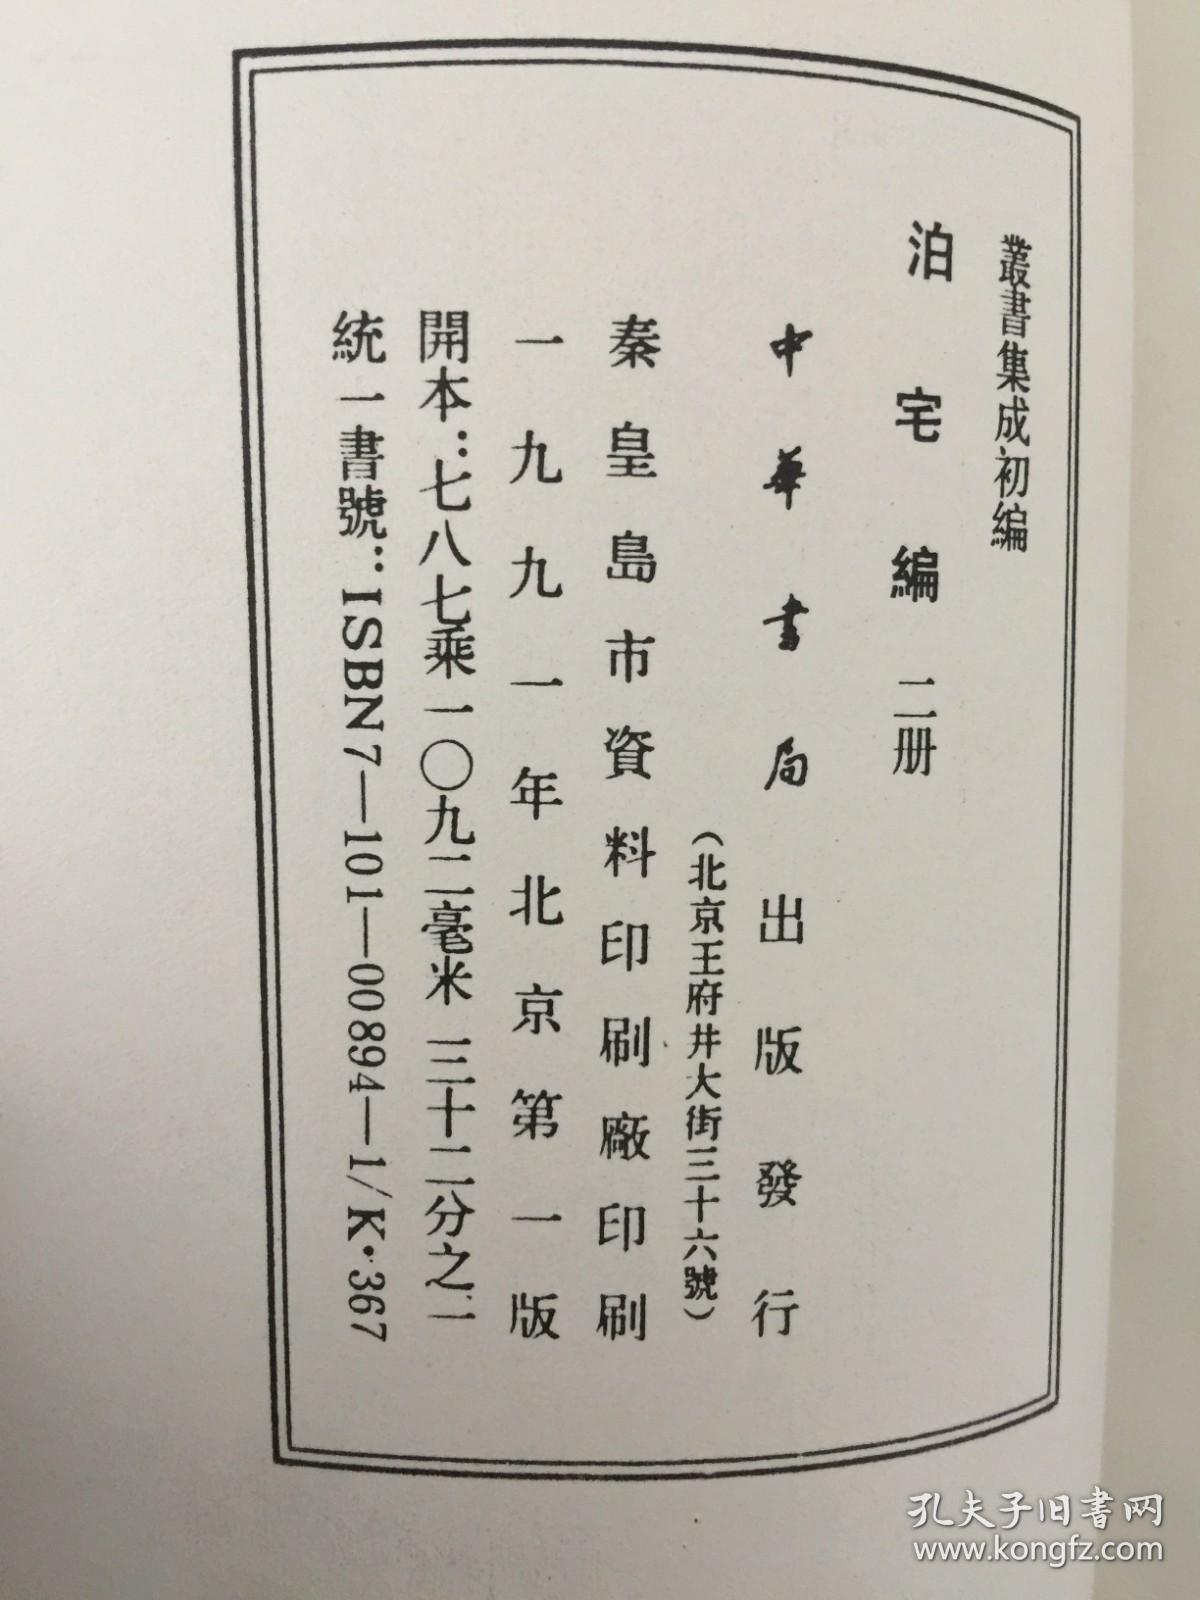 叢書集成初編
泊宅編 二册
中華書局出版發行
（北京王府井大街三十六號）
秦皇島市資料印刷廠印刷
一九九一年北京第一版
開本：七八七乘一〇九二毫米 三十二分之一
統一書號：ISBN7—101—00894—1/K·367
孔夫子旧书网
www.kongfz.com